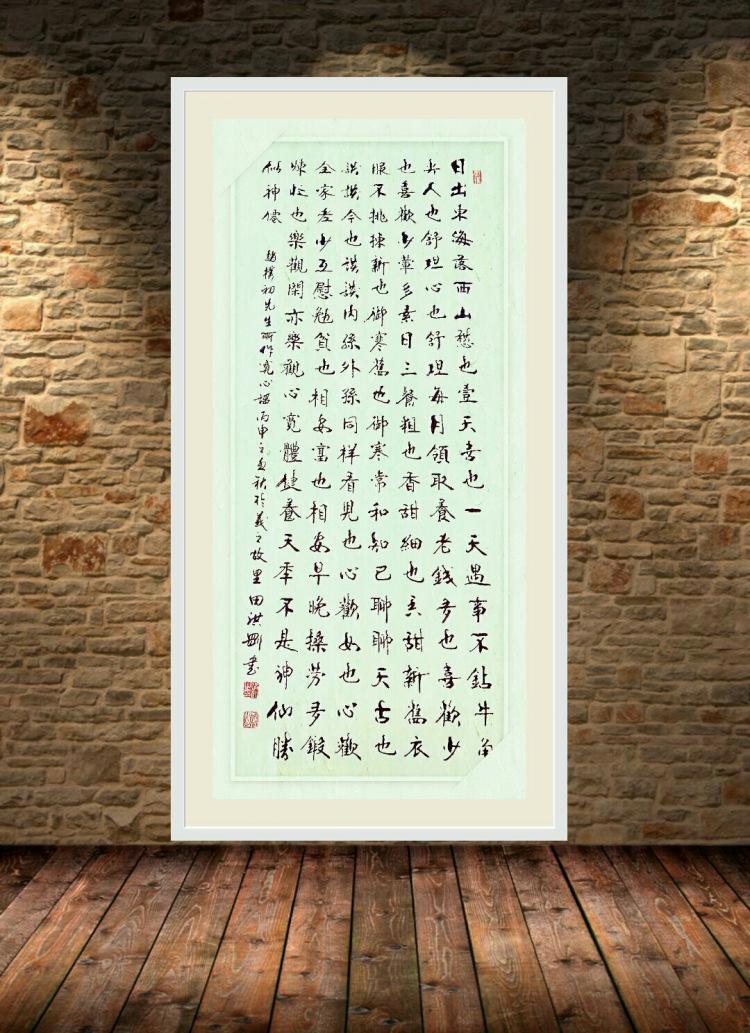 日出東海落西山愁也壹天喜也一天遇事不鉆牛角
尖人也舒坦心也舒坦每月領取養老錢多也喜歡少
也喜歡少葷多素日三餐粗也香甜細也香甜新舊衣
服不挑揀新也御寒舊也御寒常和知己聊聊天古也
談談今也談談内孫外孫同樣看兒也心歡女也心歡
全家老少互慰勉貧也相安富也相安早晚操勞多鍛
煉忙也樂觀閑亦樂觀心寬體健養天年不是神仙勝
似神僊
趙樸初先生所作寬心謠丙申之秋於羲之故里田洪剛書